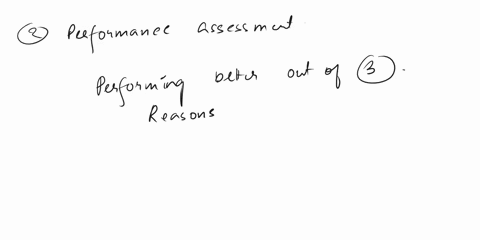 ② Performance assessment
Performing better out of ③.
Reasons